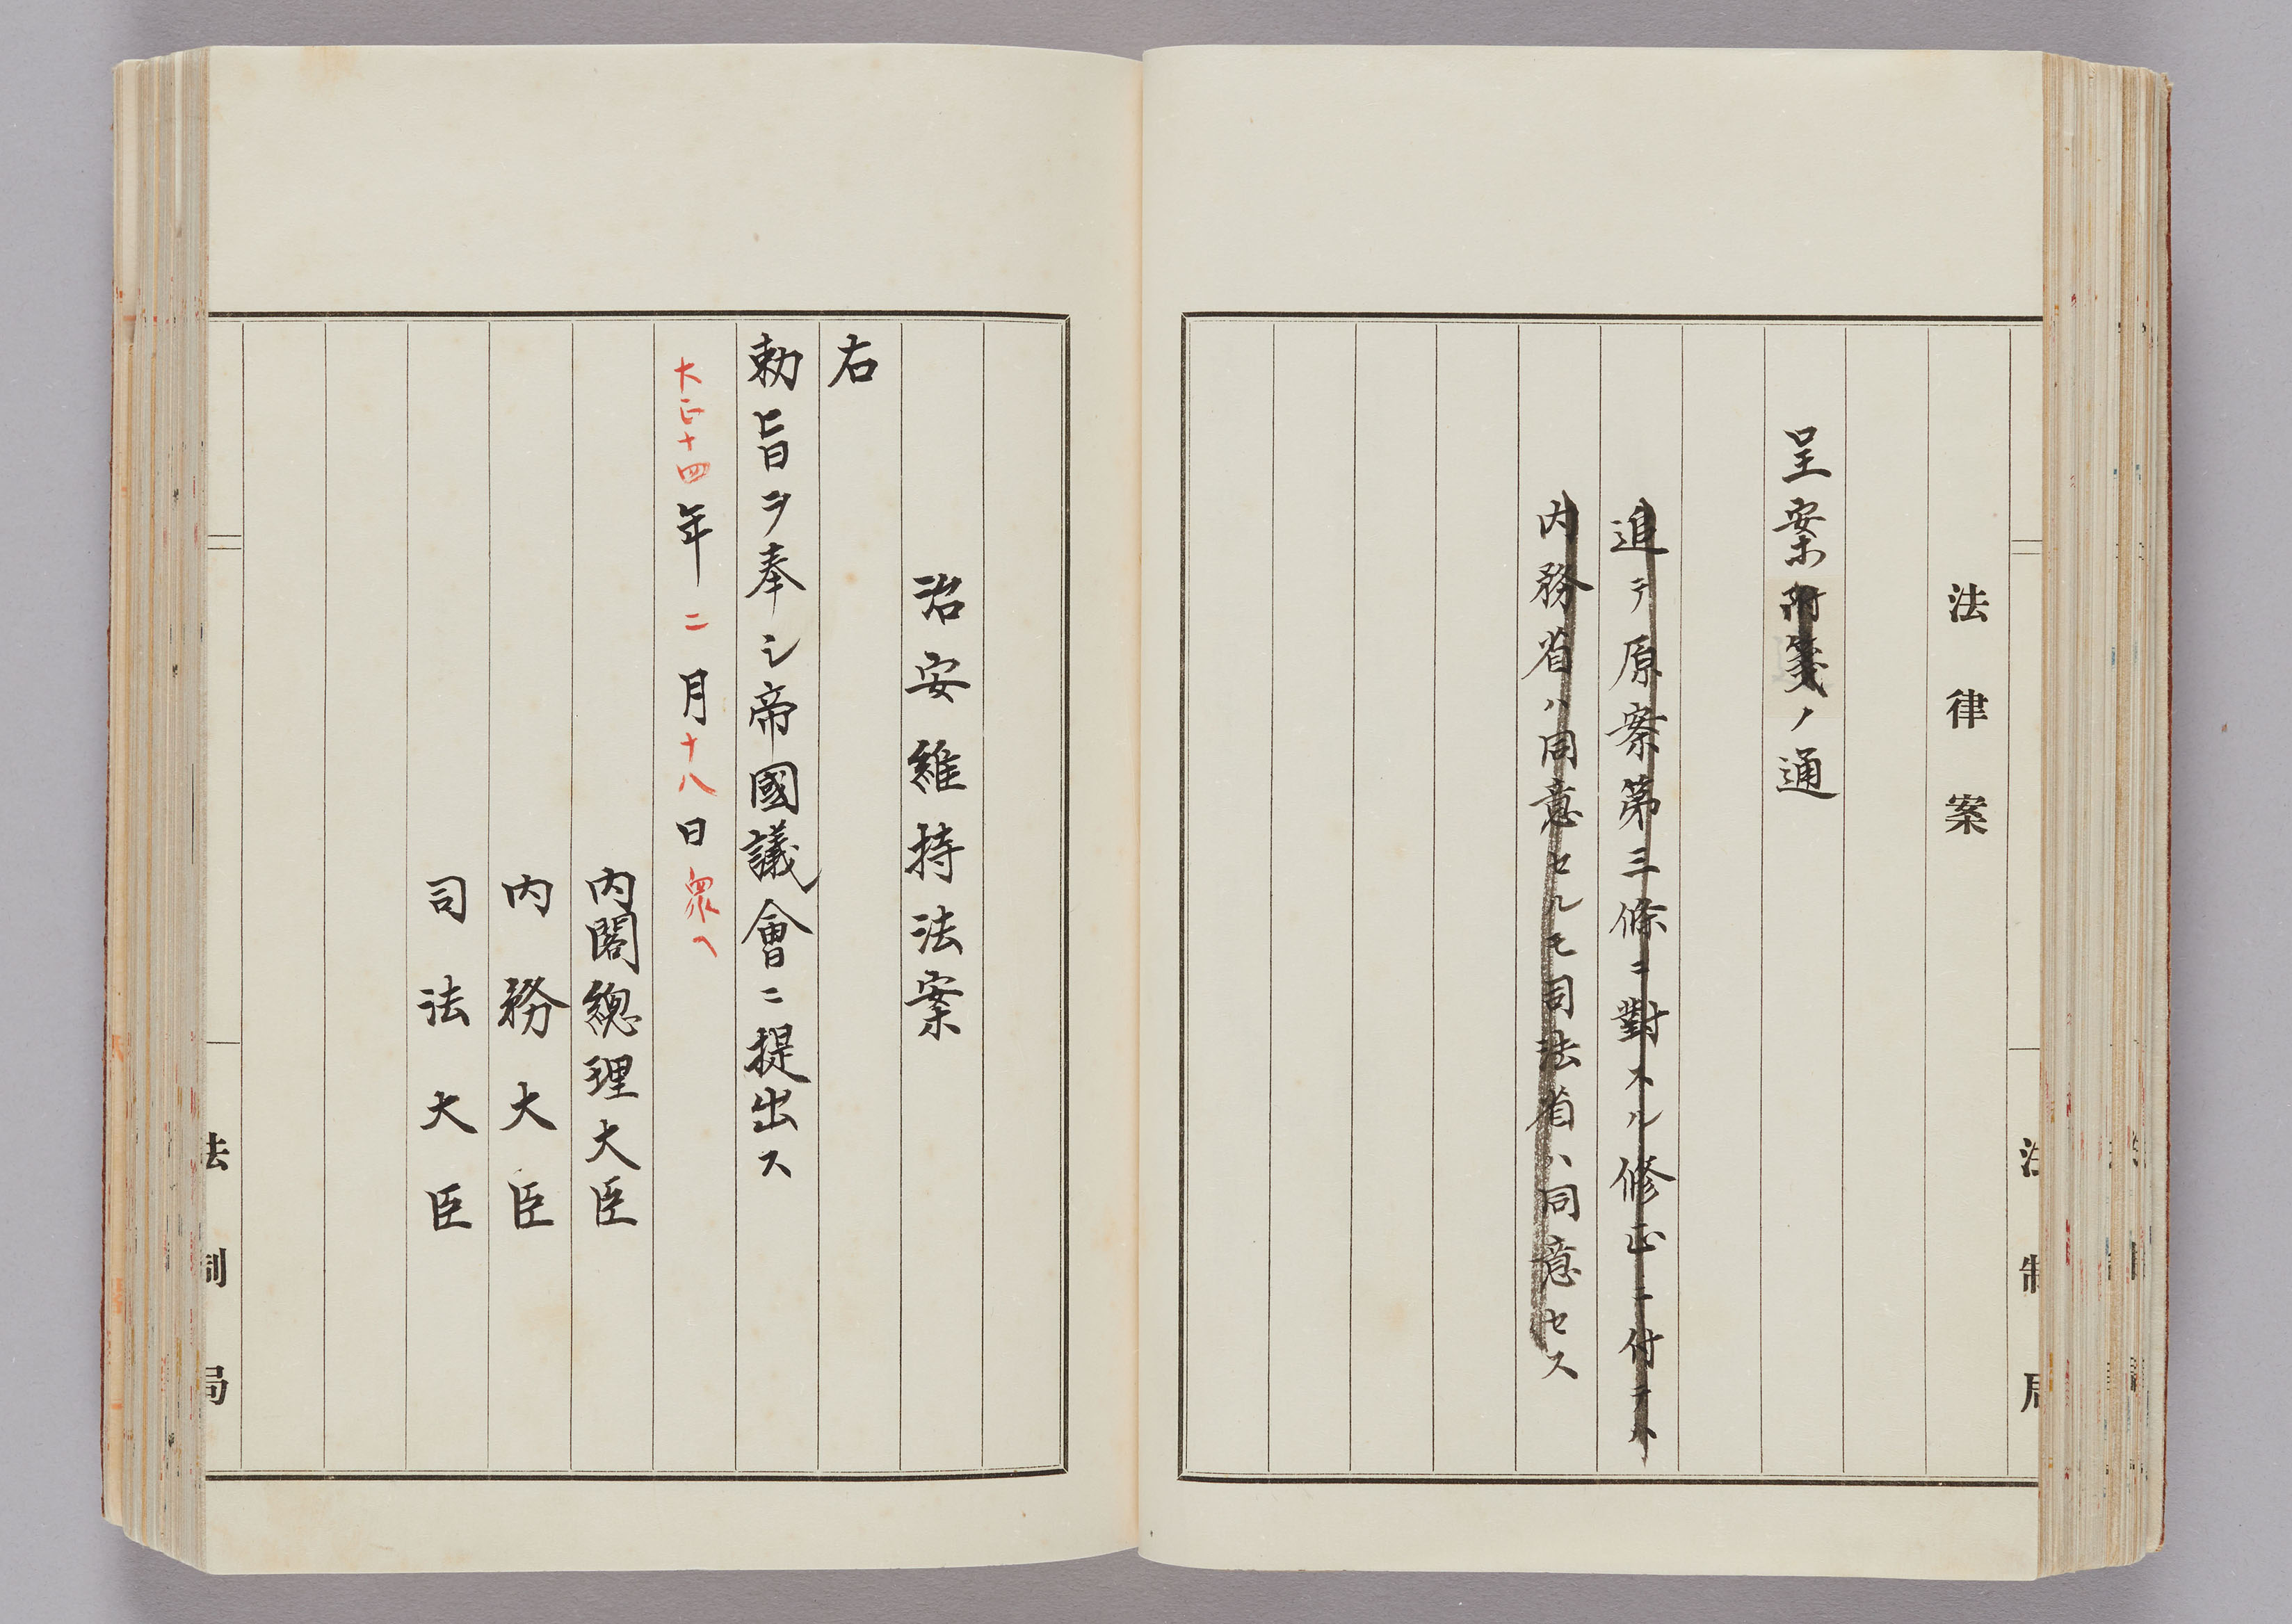 法律案
呈案附箋ノ通
追テ原案第三條ニ對スル修正ニ付テハ
内務省ハ同意セルモ司法省ハ同意セス
法制局
治安維持法案
右
勅旨ヲ奉シ帝國議會ニ提出ス
大正十四年二月十八日衆ヘ
内閣總理大臣
内務大臣
司法大臣
法制局